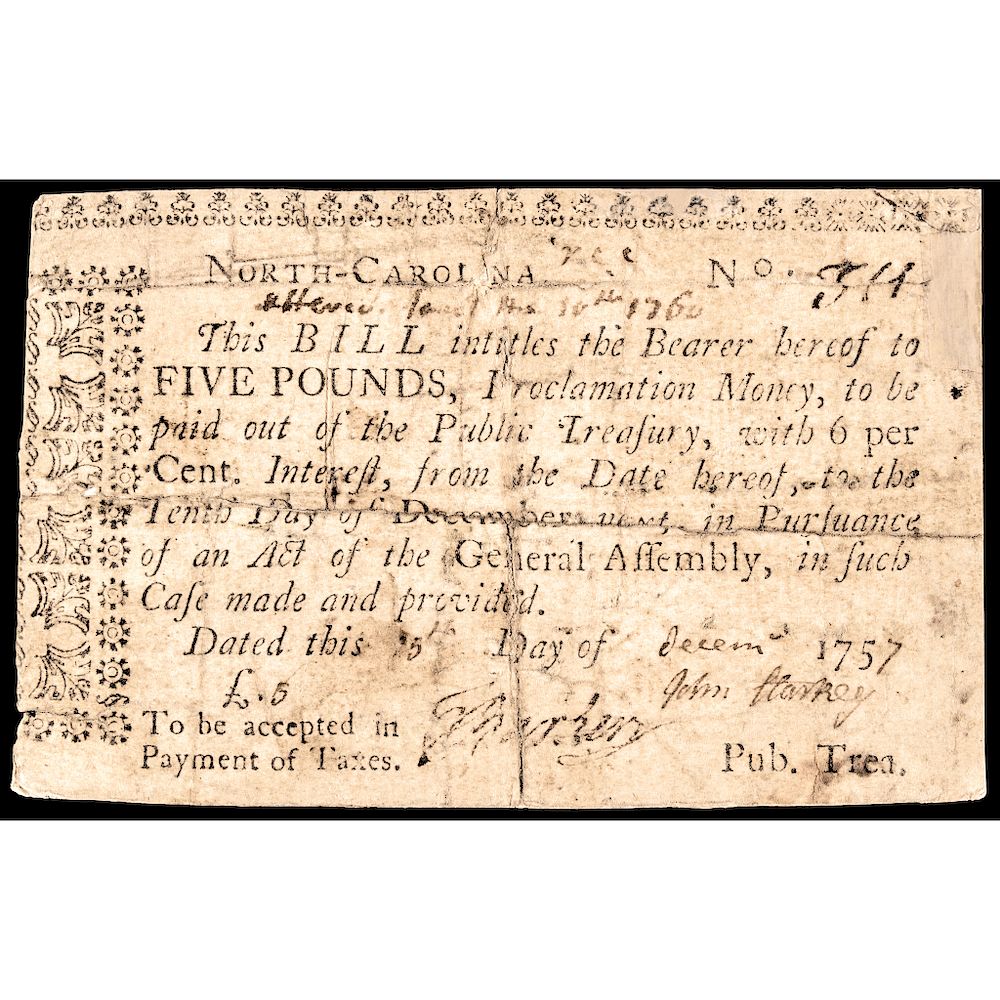 NORTH-CAROLINA No.
10th 1760
This BILL intitles the Bearer hereof to
FIVE POUNDS, Proclamation Money, to be
paid out of the Public Treaſury, with 6 per
Cent. Intereſt, from the Date hereof, to the
Tenth Day of December next, in Purſuance
of an Act of the General Aſſembly, in ſuch
Caſe made and provided.
Dated this Day of decem 1757
£.5 John Starkey
To be accepted in
Payment of Taxes. Pub. Trea.